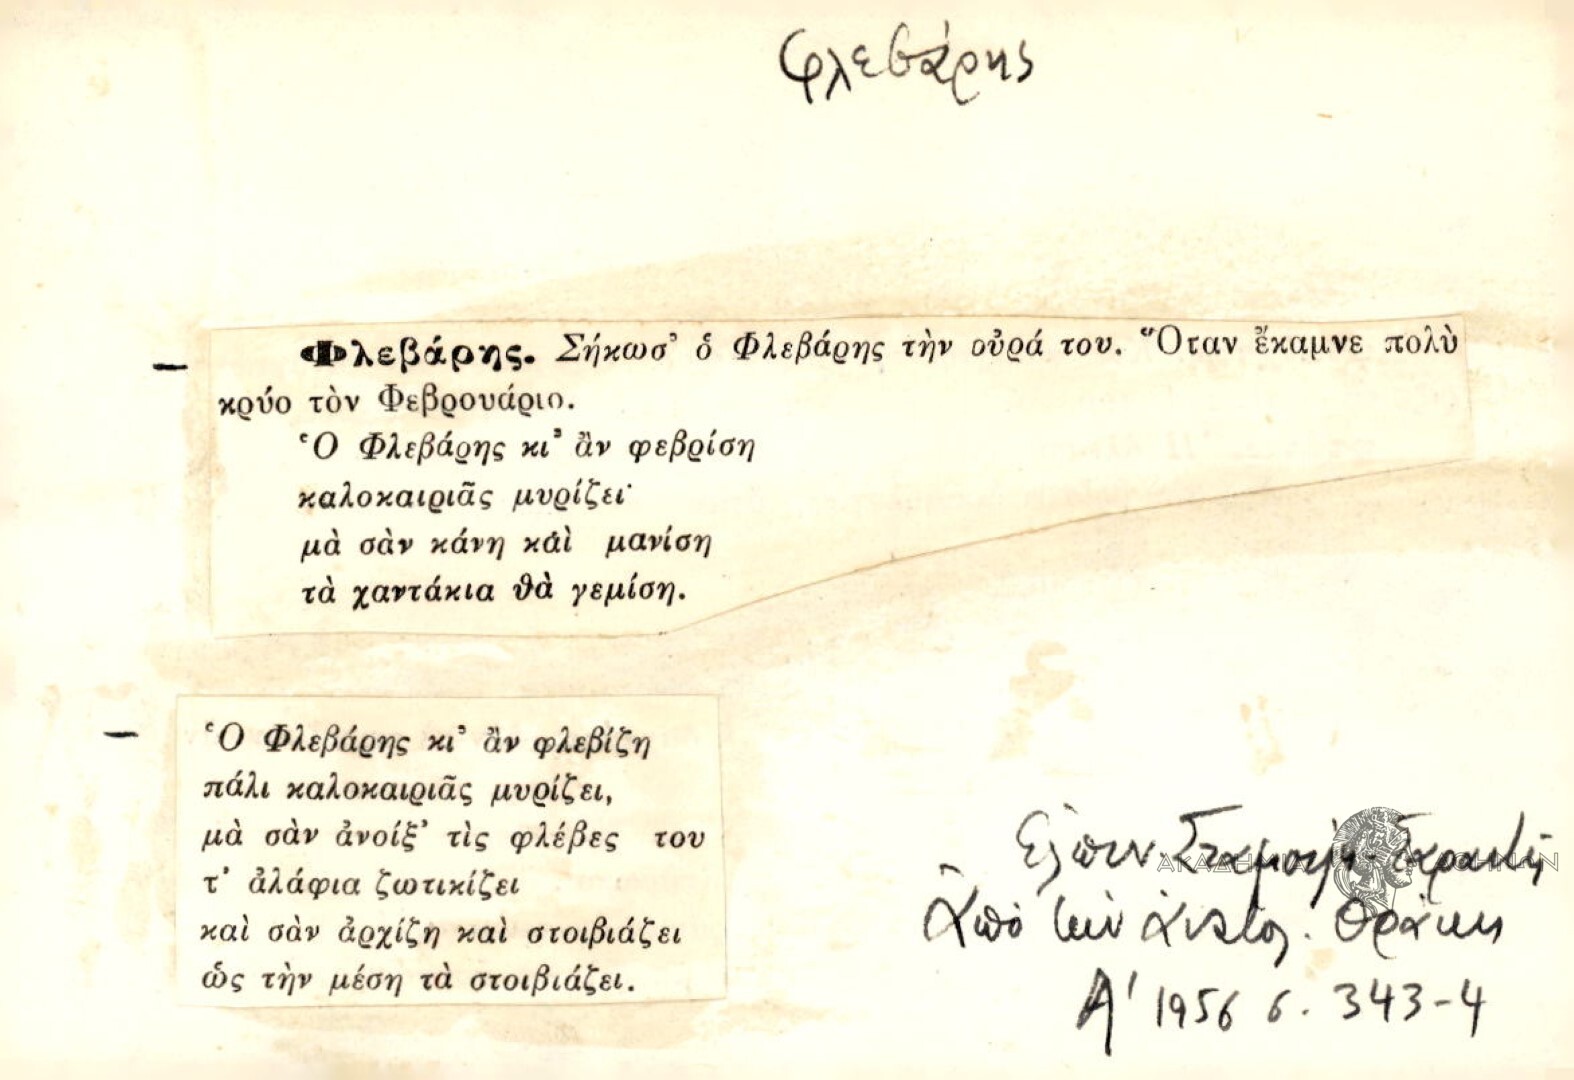 Φλεβάρης
— Φλεβάρης. Σήκωσ' ὁ Φλεβάρης τὴν οὐρά του. Ὅταν ἔκαμνε πολὺ
κρύο τὸν Φεβρουάριο.
Ὁ Φλεβάρης κι' ἂν φεβρίση
καλοκαιριᾶς μυρίζει·
μὰ σὰν κάνη καὶ μανίση
τὰ χαντάκια θὰ γεμίση.
— Ὁ Φλεβάρης κι' ἂν φλεβίζη
πάλι καλοκαιριᾶς μυρίζει,
μὰ σὰν ἀνοίξ' τὶς φλέβες του
τ' ἀλάφια ζωτικίζει
καὶ σὰν ἀρχίζη καὶ στοιβιάζει
ὡς τὴν μέση τὰ στοιβιάζει.
Ἐλπιν. Σταμούλη-Σαραντῆ
ΑΚΑΔΗΜΙΑ ΑΘΗΝΩΝ
Ἀπὸ τὴν Ἀνατολ. Θράκης
Α' 1956 σ. 343-4